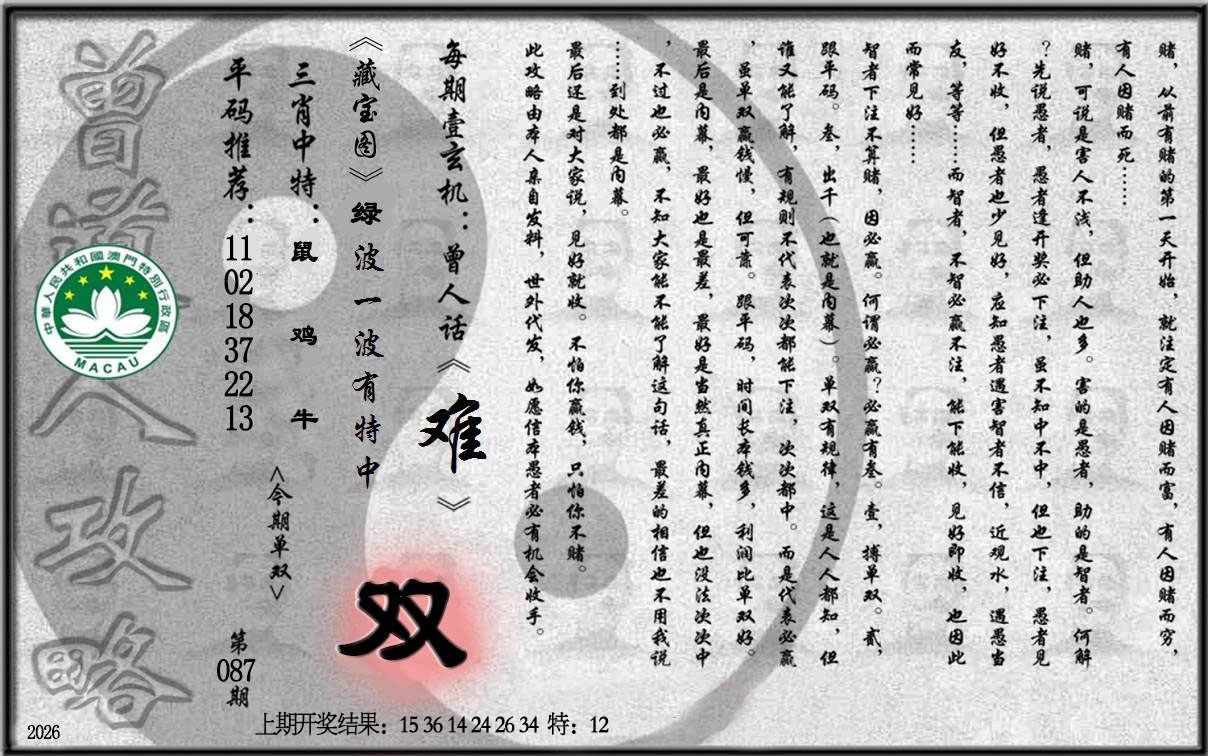 赌，从前有赌的第一天开始，就注定有人因赌而富，有人因赌而穷，
有人因赌而死……
赌，可说是害人不浅，但助人也多。害的是愚者，助的是智者。何解
？先说愚者，愚者逢开奖必下注，虽不知中不中，但也下注，愚者见
好不收，但愚者也少见好，应知愚者遇害智者不信，近观水，遇愚当
友，等等……而智者，不智必赢不注，能下能收，见好即收，也因此
而常见好……
智者下注不算赌，因必赢。何谓必赢？必赢有叁。壹，搏单双。贰，
跟平码。叁，出千（也就是内幕）。单双有规律，这是人人都知，但
谁又能了解，有规则不代表次次都能下注，次次都中。而是代表必赢
，虽单双赢钱慢，但可靠。跟平码，时间长本钱多，利润比单双好。
最后是内幕，最好也是最差，最好是当然真正内幕，但也没法次次中
，不过也必赢，不知大家能不能了解这句话，最差的相信也不用我说
……到处都是内幕。
最后还是对大家说，见好就收。不怕你赢钱，只怕你不赌。
此攻略由本人亲自发料，世外代发，如愿信本愚者必有机会收手。
每期壹玄机：曾人话《难》
《藏宝图》绿波一波有特中
双
三肖中特：鼠 鸡 牛
<今期单双>
平码推荐：11 02 18 37 22 13
第087期
曾道人攻略
中華人民共和國澳門特別行政區
MACAU
上期开奖结果：15 36 14 24 26 34 特：12
2026